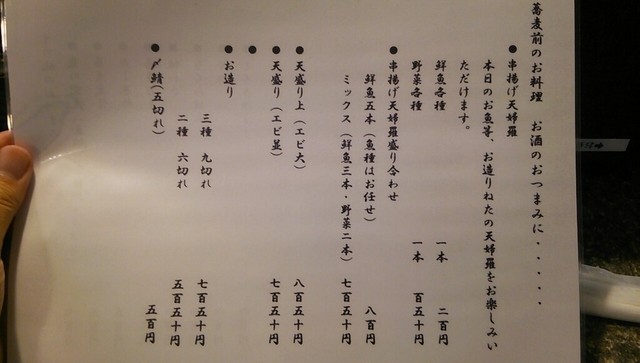 蕎麦前のお料理　お酒のおつまみに・・・・・
●串揚げ天婦羅
本日のお魚等、お造りねたの天婦羅をお楽しみい
ただけます。
鮮魚各種　一本　二百円
野菜各種　一本　百五十円
●串揚げ天婦羅盛り合わせ
鮮魚五本（魚種はお任せ）　八百円
ミックス（鮮魚三本・野菜二本）　七百五十円
●天盛り上（エビ大）　八百五十円
●天盛り（エビ並）　七百五十円
●
●お造り
三種　九切れ　七百五十円
二種　六切れ　五百五十円
●〆鯖（五切れ）　五百円